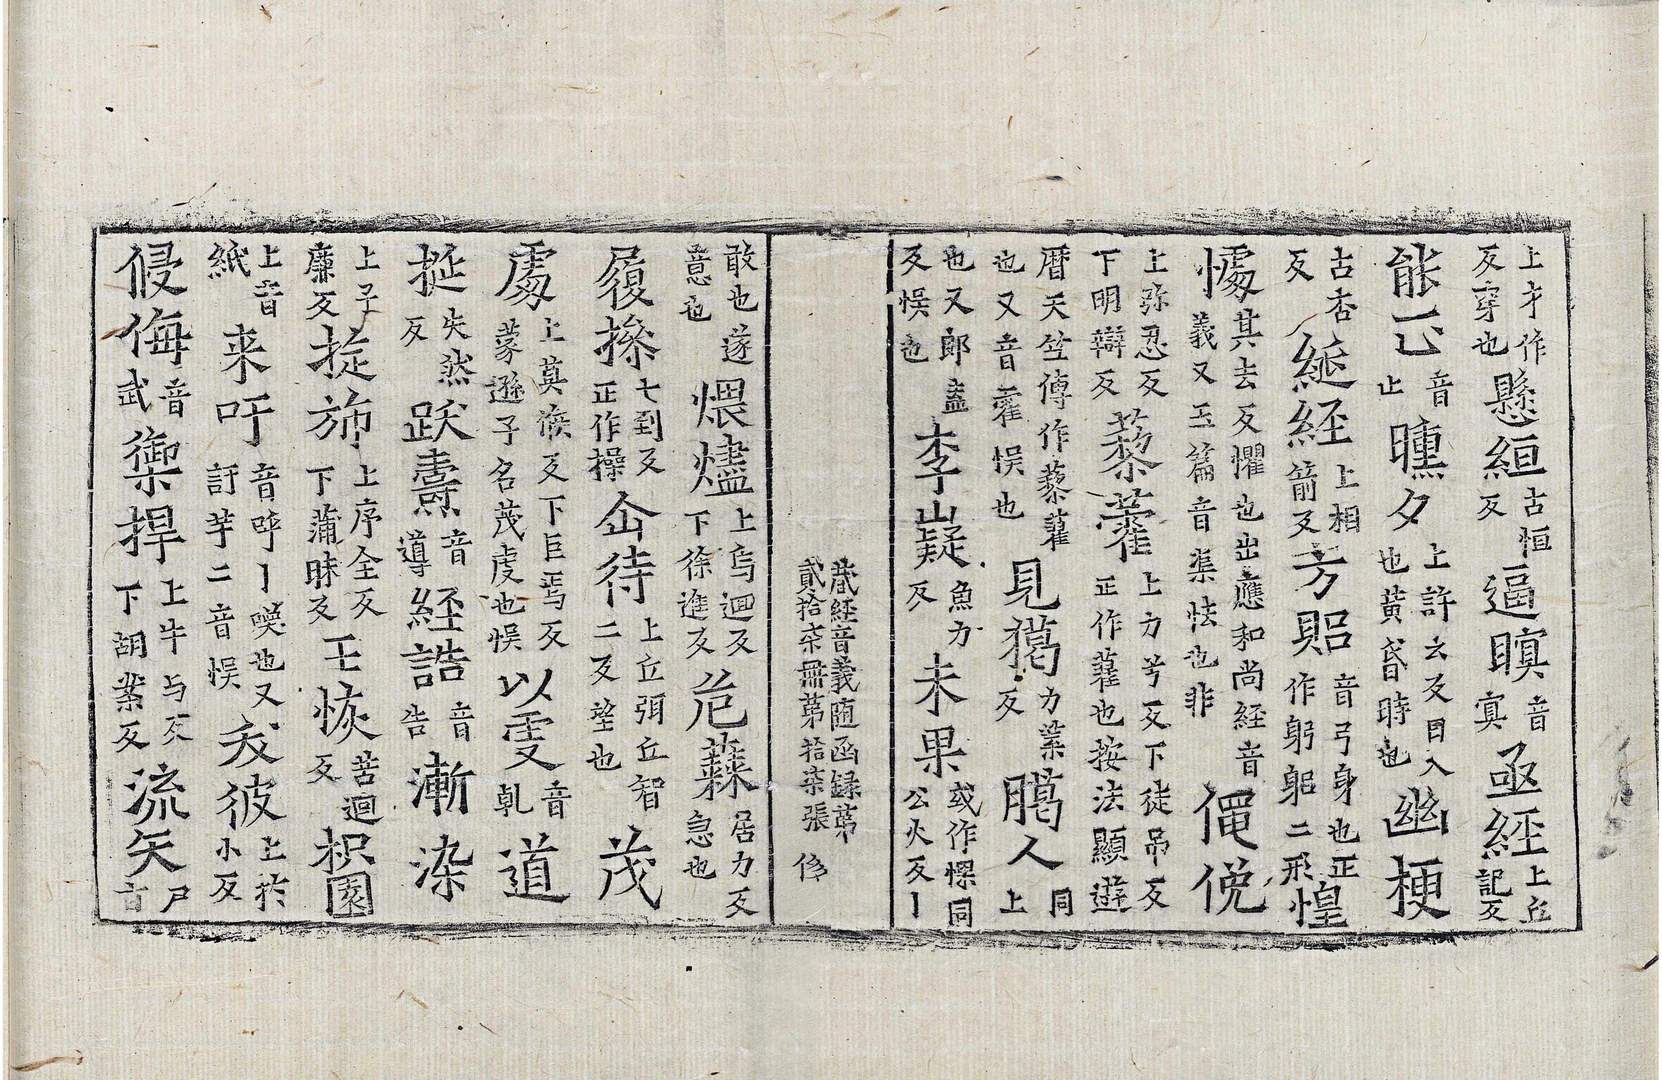 上才作反穿也懸絙古恒反逼瞑音寞亟經上丘記反
能已音止曛夕上許云反日入也黄昏時也幽梗
古杏反綖經上相箭反方躳音弓身也正作躬躯二形惶
懅其去反懼也出應和尚經音義又玉篇音渠怯也非僶俛
上弥忍反下明辯反藜藿上力兮反下徒吊反正作藋也按法顯遊
曆天竺傳作藜藋也又音霍悮也見獦力業反臈人同上
也又郎盍反悮也李嶷魚力反未果或作惈同公火反丨
藏經音義随函録第貳拾柒册第拾柒張
敢也遂意也煨燼上烏迴反下徐進反危蕀居力反急也
履摻七到反正作操企待上丘弭丘智二反望也茂
虔上莫候反下巨焉反蒙遜子名茂虔也悮以雯音軋道
挻失然反跃壽音導經誥音告漸染
上子廉反㨗斾上序全反下蒲昧反壬恢苦迴反枳園
上音紙来吁音呼丨嘆也又訏芋二音悮夭彼上於小反
侵侮音武禦捍上牛与反下胡業反流矢尸音